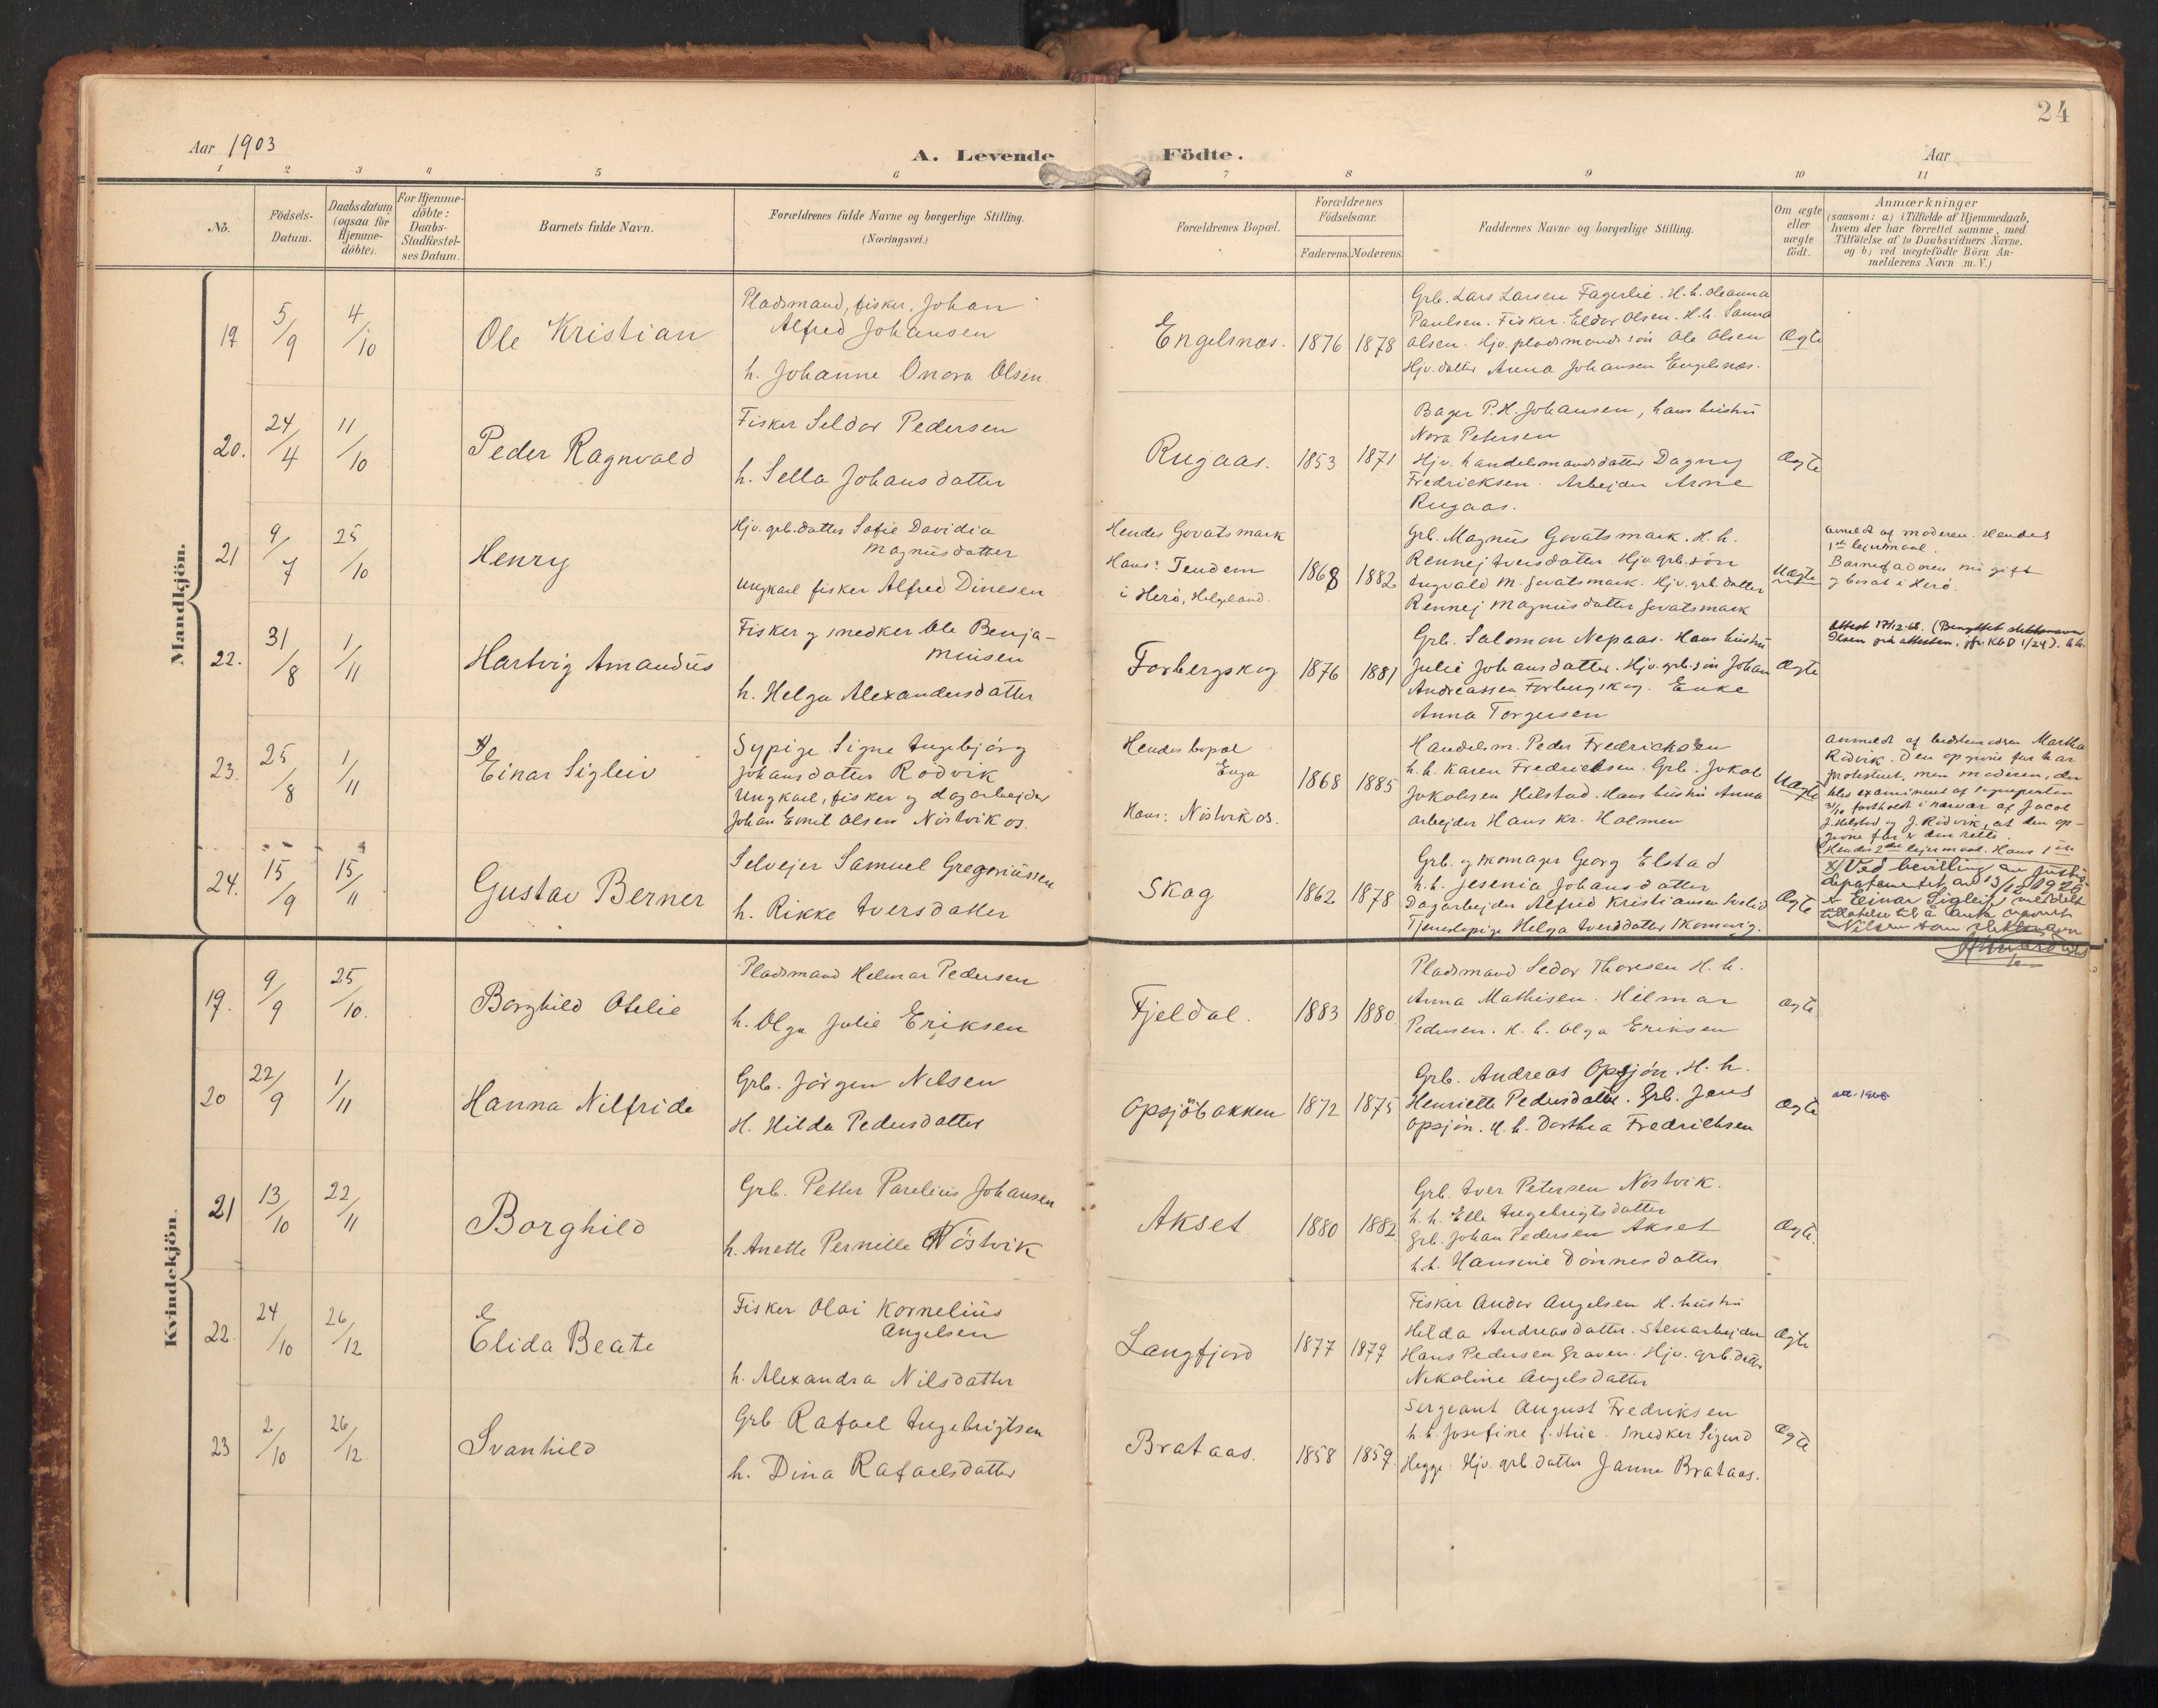 24
Aar 1903
A. Levende Födte.
Aar
1 2 3 4 5 6 7 8 9 10 11
No.
Födsels-Datum.
Daabsdatum (ogsaa for Hjemme-döbte).
For Hjemme-döbte: Daabs-Stadfæstel-ses Datum.
Barnets fulde Navn.
Forældrenes fulde Navne og borgerlige Stilling. (Næringsvei.)
Forældrenes Bopæl.
Forældrenes Födselsaar.
Faderens. Moderens.
Faddernes Navne og borgerlige Stilling.
Om ægte eller uægte födt.
Anmærkninger
(saasom: a) i Tilfælde af Hjemmedaab,
hvem der har forrettet samme, med
Tilföielse af to Daabsvidners Navne.
og b) ved uægtefödte Börn An-
melderens Navn m. V.)
Mandkjön.
19
5/9
4/10
Ole Kristian
Pladsmand, fisker, Johan
Alfred Johansen
h. Johanne Onora Olsen
Engelsnæs.
1876
1878
Grb. Lars Larsen Fagerlie. H. h. Oleanna
Paulsen. Fisker Eldor Olsen. H. h. Sanna
Olsen. Hjv. pladsmands søn Ole Olsen
Hjv. datter Anna Johansen Engelsnæs.
Ægte
20.
24/4
11/10
Peder Ragnvald
Fisker Seldor Pedersen
h. Sella Johansdatter
Rugaas.
1853
1871
Bager P. H. Johansen, hans hustru
Nora Petersen
Hjv. handelsmandsdatter Dagny
Fredricksen. Arbejder Arne
Rugaas.
Ægte
21
9/7
25/10
Henry
Hjv. grb. datter Sofie Davidia
Magnusdatter
Ungkarl fisker Alfred Dinesen
Hendes Govatsmark
Hans: Tendem
i Herö, Helgeland.
1868
1882
Grb. Magnus Govatsmark. H. h.
Rennej Iversdatter. Hjv. grb. søn
Ingvald M. Govatsmark. Hjv. grb. datter
Rennej Magnusdatter Govatsmark
Uægte
Anmeldt af moderen. Hendes
1ste lejermaal.
Barnefaderen nu gift
og bosat i Herö.
22.
31/8
1/11
Hartvig Amandus
Fisker og snedker Ole Benja-
minsen
h. Helga Alexandersdatter
Forbergskog
1876
1881
Grb. Salomon Nepaas. Hans hustru
Julie Johansdatter. Hjv. grb. søn Johan
Andreassen Forbergskog. Enke
Anna Torgersen
Ægte
Attest 17/12-68. (Benyttet slektsnavn
Olsen på attesten, jfr. KbD 1/24).
23.
25/8
1/11
Einar Sigleiv
Sypige Signe Ingebjörg
Johansdatter Rødvik
Ungkarl, fisker og dagarbejder
Johan Emil Olsen Nöstvik os.
Hendes bopæl
Enga
Hans: Nöstvik os.
1868
1885
Handelsm. Peder Fredricksen
h. h. Karen Fredricksen. Grb. Jakob
Jakobsen Hilstad. Hans hustru Anna
arbejder Hans Kr. Holmen
Uægte
Anmeldt af bedstemoderen Martha
Rödvik. Den opgivne far har
protestert, men moderen, der
blev examineret af sogneprsten
fastholdt i nærvær af Jacob
J. Hilstad og J. Rödvik, at den op-
givne far er den rette.
Hendes 2det lejermaal. Hans 1ste
24.
15/9
15/11
Gustav Berner
Selvejer Samuel Gregoriussen
h. Rikke Iversdatter
Skag
1862
1878
Grb. og skomager Georg Elstad
h. h. Jesenia Johansdatter
Dagarbejder Alfred Kristiansen
Tjenestepige Helga Iversdatter
Ægte
x) Ved bevilling av Justis-
departementet av 13/12 1920
er Einar Sigleif meddelt
tillatelse til å anta navnet
Nilsen som slektsnavn
Kvindekjön.
19.
9/9
25/10.
Borghild Otelie
Pladsmand Helmar Pedersen
h. Olga Julie Eriksen
Fjeldal.
1883
1880
Pladsmand Sedor Thoresen H. h.
Anna Mathisen. Hilmar
Pedersen. H. h. Olga Eriksen
Ægte
20
22/9
1/11
Hanna Nilfride
Grb. Jörgen Nilsen
H. Hilda Pedersdatter
Opsjöbakken
1872
1875
Grb. Andreas Opsjön. H. h.
Henriette Pedersdatter. Grb. Jens
Opsjön. H. h. Dorthea Fredrichsen
Ægte
att. 1968
21
13/10
22/11
Borghild
Grb. Petter Parelius Johansen
h. Anette Pernille Nöstvik
Akset.
1880
1882
Grb. Iver Petersen Nöstvik.
h. h. Elle Ingebrigtsdatter
Grb. Johan Pedersen Akset
h. h. Hansine Dönnesdatter
Ægte.
22.
24/10
26/12
Elida Beate
Fisker Olai Kornelius
Angelsen
h. Alexandra Nilsdatter
Langfjord
1877
1879
Fisker Andor Angelsen H. hustru
Hilda Andreasdatter. Stenarbejder
Hans Pedersen Graven. Hjv. grb. datter
Nikoline Angelsdatter
Ægte
23
2/10
26/12
Svanhild
Grb. Rafael Ingebrigtsen
h. Dina Rafaelsdatter
Brataas.
1858
1859.
Sergeant August Fredriksen
h. h. Josefine f. Hüe. Snedker Sigurd
Hegge. Hjv. grb. datter Janna Brataas.
Ægte